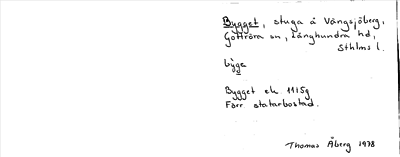 Bygget, stuga å Vängsjöberg,
Gottröra sn, Långhundra hd,
Sthlms l.
bỳge
Bygget ek 1115g
Förr statarbostad.
Thomas Åberg 1978